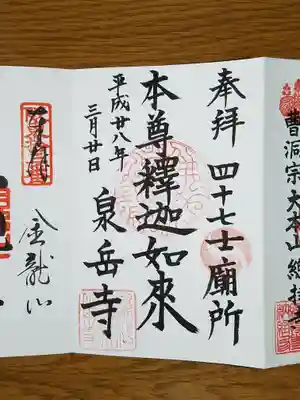 曹洞宗大本山總持寺
奉拝 四十七士廟所
本尊釋迦如來
平成廿八年
三月廿日
泉岳寺
金龍山